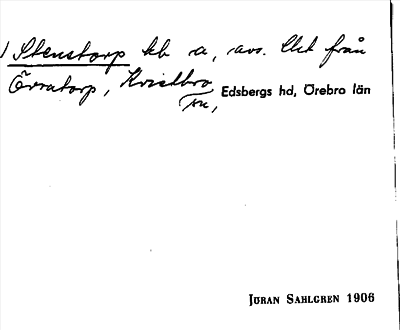 1 Stenstorp lcb a, avs. Utt från
Övratorp, Kvistbro
sn, Edsbergs hd, Örebro län
JÖRAN SAHLGREN 1906